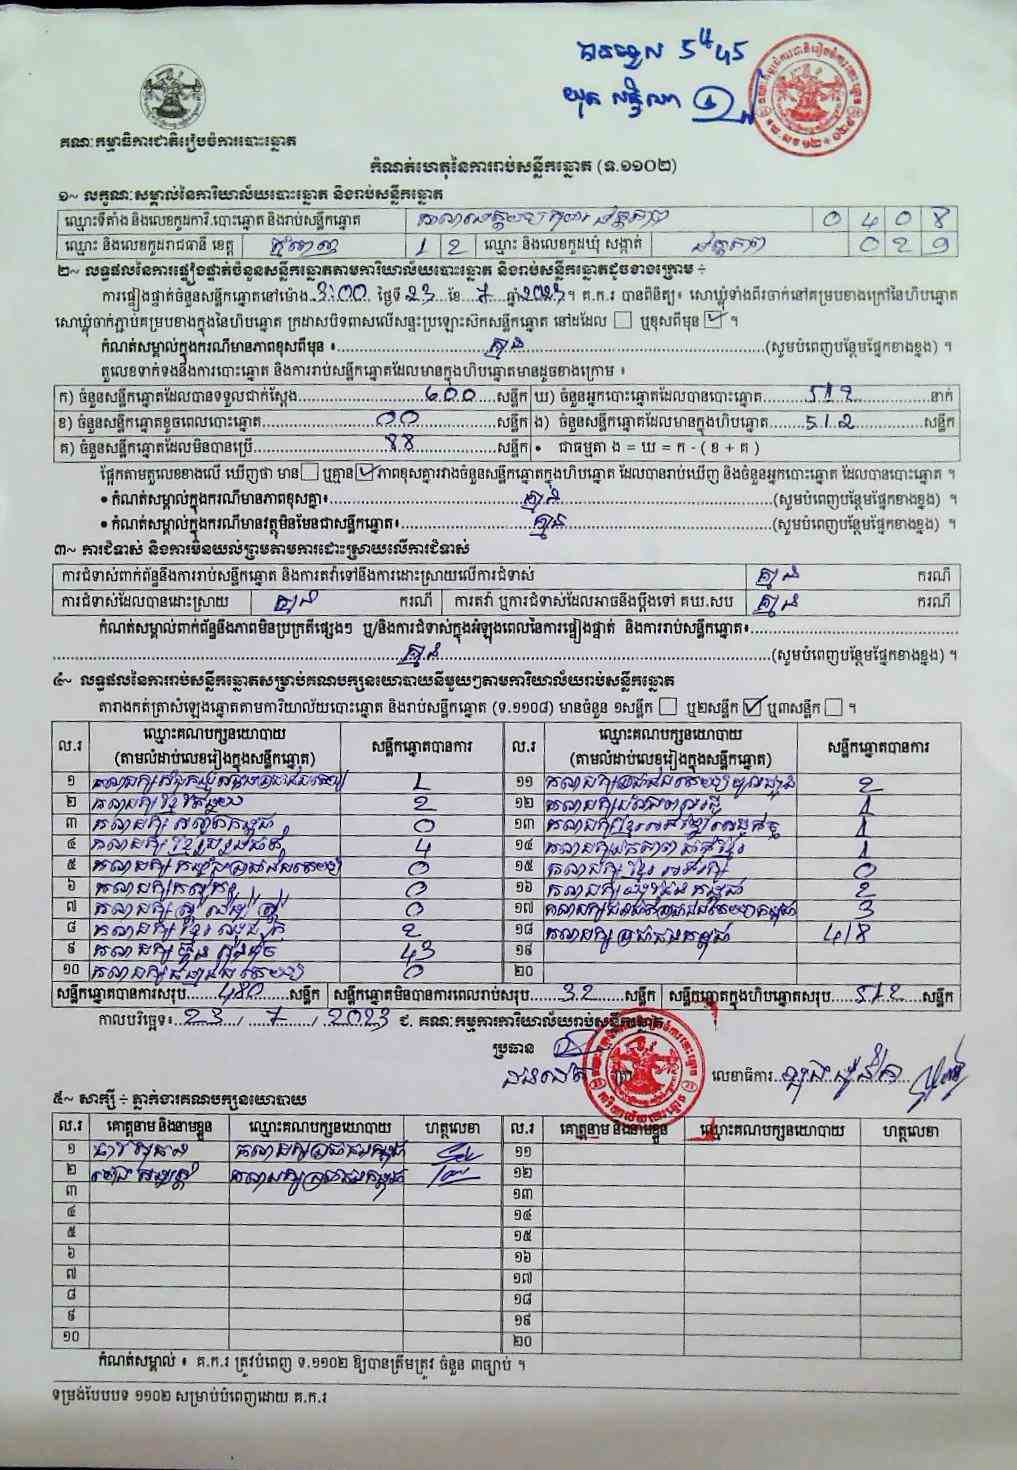 បានទទួល 5 45
គណៈកម្មាធិការជាតិរៀបចំការបោះឆ្នោត
កំណត់ហេតុនៃការរាប់សន្លឹកឆ្នោត (ទ.១១០២)
១~ លក្ខណៈសម្គាល់នៃការិយាល័យបោះឆ្នោត និងរាប់សន្លឹកឆ្នោត
ឈ្មោះទីតាំង និងលេខកូដការិ.បោះឆ្នោត និងរាប់សន្លឹកឆ្នោត 0 4 0 8
ឈ្មោះ និងលេខកូដរាជធានី ខេត្ត ភ្នំពេញ 1 2 ឈ្មោះ និងលេខកូដឃុំ សង្កាត់ 0 2 9
២~ លទ្ធផលនៃការផ្ទៀងផ្ទាត់ចំនួនសន្លឹកឆ្នោតតាមការិយាល័យបោះឆ្នោត និងរាប់សន្លឹកឆ្នោតដូចខាងក្រោម ÷
ការផ្ទៀងផ្ទាត់ចំនួនសន្លឹកឆ្នោតនៅម៉ោង 3:00 ថ្ងៃទី 23 ខែ 7 ឆ្នាំ 2023 ។ គ.ក.រ បានពិនិត្យ៖ សោឃ្លុំទាំងពីរចាក់នៅគម្របខាងក្រៅនៃហិបឆ្នោត
សោឃ្លុំចាក់ភ្ជាប់គម្របខាងក្នុងនៃហិបឆ្នោត ក្រដាសបិទពាសលើសន្ទះប្រឡោះស៊កសន្លឹកឆ្នោត នៅដដែល ☐ ឬខុសពីមុន ☑ ។
កំណត់សម្គាល់ក្នុងករណីមានភាពខុសពីមុន ៖ គ្មាន (សូមបំពេញបន្ថែមផ្នែកខាងខ្នង) ។
តួលេខទាក់ទងនឹងការបោះឆ្នោត និងការរាប់សន្លឹកឆ្នោតដែលមានក្នុងហិបឆ្នោតមានដូចខាងក្រោម ៖
ក) ចំនួនសន្លឹកឆ្នោតដែលបានទទួលជាក់ស្តែង 600 សន្លឹក ឃ) ចំនួនអ្នកបោះឆ្នោតដែលបានបោះឆ្នោត 512 នាក់
ខ) ចំនួនសន្លឹកឆ្នោតខូចពេលបោះឆ្នោត 00 សន្លឹក ង) ចំនួនសន្លឹកឆ្នោតដែលមានក្នុងហិបឆ្នោត 512 សន្លឹក
គ) ចំនួនសន្លឹកឆ្នោតដែលមិនបានប្រើ 88 សន្លឹក • ជាធម្មតា ង = ឃ = ក - ( ខ + គ )
ផ្អែកតាមតួលេខខាងលើ ឃើញថា មាន ☐ ឬគ្មាន ☑ ភាពខុសគ្នារវាងចំនួនសន្លឹកឆ្នោតក្នុងហិបឆ្នោត ដែលបានរាប់ឃើញ និងចំនួនអ្នកបោះឆ្នោត ដែលបានបោះឆ្នោត ។
• កំណត់សម្គាល់ក្នុងករណីមានភាពខុសគ្នា៖ គ្មាន (សូមបំពេញបន្ថែមផ្នែកខាងខ្នង) ។
• កំណត់សម្គាល់ក្នុងករណីមានវត្ថុមិនមែនជាសន្លឹកឆ្នោត៖ គ្មាន (សូមបំពេញបន្ថែមផ្នែកខាងខ្នង) ។
៣~ ការជំទាស់ និងការមិនយល់ព្រមតាមការដោះស្រាយលើការជំទាស់
ការជំទាស់ពាក់ព័ន្ធនឹងការរាប់សន្លឹកឆ្នោត និងការតវ៉ាទៅនឹងការដោះស្រាយលើការជំទាស់ គ្មាន ករណី
ការជំទាស់ដែលបានដោះស្រាយ គ្មាន ករណី ការតវ៉ា ឬការជំទាស់ដែលអាចនឹងប្តឹងទៅ គឃ.សប គ្មាន ករណី
កំណត់សម្គាល់ពាក់ព័ន្ធនឹងភាពមិនប្រក្រតីផ្សេងៗ ឬ/និងការជំទាស់ក្នុងអំឡុងពេលនៃការផ្ទៀងផ្ទាត់ និងការរាប់សន្លឹកឆ្នោត៖
គ្មាន (សូមបំពេញបន្ថែមផ្នែកខាងខ្នង) ។
៤~ លទ្ធផលនៃការរាប់សន្លឹកឆ្នោតសម្រាប់គណបក្សនយោបាយនីមួយៗតាមការិយាល័យរាប់សន្លឹកឆ្នោត
តារាងកត់ត្រាសំឡេងឆ្នោតតាមការិយាល័យបោះឆ្នោត និងរាប់សន្លឹកឆ្នោត (ទ.១១០៨) មានចំនួន ១សន្លឹក ☐ ឬ២សន្លឹក ☑ ឬ៣សន្លឹក ☐ ។
ល.រ ឈ្មោះគណបក្សនយោបាយ (តាមលំដាប់លេខរៀងក្នុងសន្លឹកឆ្នោត) សន្លឹកឆ្នោតបានការ ល.រ ឈ្មោះគណបក្សនយោបាយ (តាមលំដាប់លេខរៀងក្នុងសន្លឹកឆ្នោត) សន្លឹកឆ្នោតបានការ
១ 1 ១១ 2
២ គណបក្ស 2 ១២ គណបក្ស 1
៣ គណបក្ស 0 ១៣ គណបក្ស 1
៤ គណបក្ស 4 ១៤ គណបក្ស 1
៥ គណបក្ស 0 ១៥ គណបក្ស 0
៦ គណបក្ស 0 ១៦ គណបក្ស 2
៧ គណបក្ស 0 ១៧ គណបក្ស 3
៨ គណបក្ស 2 ១៨ គណបក្សប្រជាជនកម្ពុជា 418
៩ គណបក្ស 43 ១៩
១០ គណបក្ស 0 ២០
សន្លឹកឆ្នោតបានការសរុប 480 សន្លឹក សន្លឹកឆ្នោតមិនបានការពេលរាប់សរុប 32 សន្លឹក សន្លឹកឆ្នោតក្នុងហិបឆ្នោតសរុប 512 សន្លឹក
កាលបរិច្ឆេទ៖ 23 / 7 / 2023 ជ. គណៈកម្មការការិយាល័យរាប់សន្លឹកឆ្នោត
ប្រធាន
លេខាធិការ
៥~ សាក្សី ÷ ភ្នាក់ងារគណបក្សនយោបាយ
ល.រ គោត្តនាម និងនាមខ្លួន ឈ្មោះគណបក្សនយោបាយ ហត្ថលេខា ល.រ គោត្តនាម និងនាមខ្លួន ឈ្មោះគណបក្សនយោបាយ ហត្ថលេខា
១ គណបក្សប្រជាជនកម្ពុជា ១១
២ គណបក្សប្រជាជនកម្ពុជា ១២
៣ ១៣
៤ ១៤
៥ ១៥
៦ ១៦
៧ ១៧
៨ ១៨
៩ ១៩
១០ ២០
កំណត់សម្គាល់ ៖ គ.ក.រ ត្រូវបំពេញ ទ.១១០២ ឱ្យបានត្រឹមត្រូវ ចំនួន ៣ច្បាប់ ។
ទម្រង់បែបបទ ១១០២ សម្រាប់បំពេញដោយ គ.ក.រ